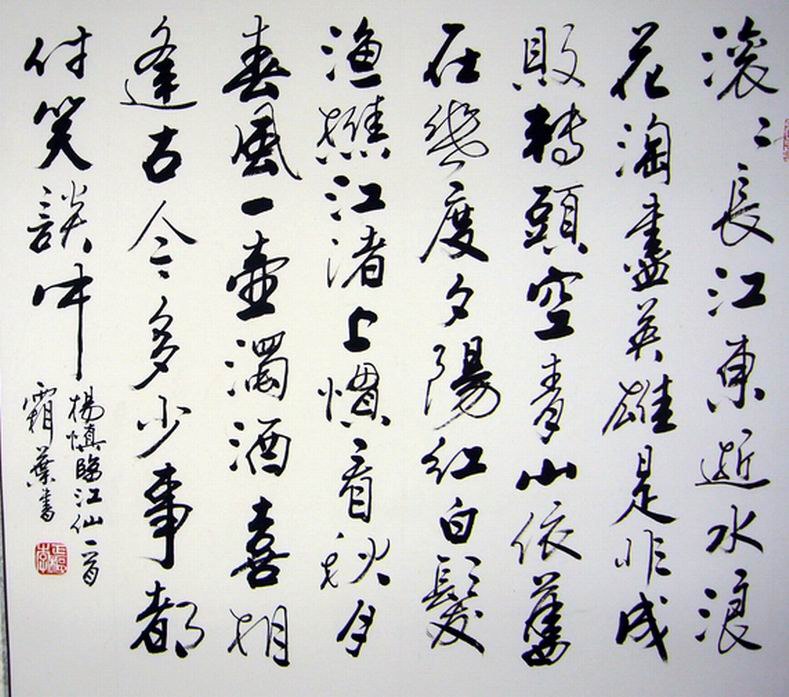 滚〻長江東逝水浪
花淘盡英雄是非成
敗轉頭空青山依舊
在幾度夕陽紅白髮
漁樵江渚上慣看秋月
春風一壺濁酒喜相
逢古今多少事都
付笑談中
楊慎臨江仙一首
霜葉書